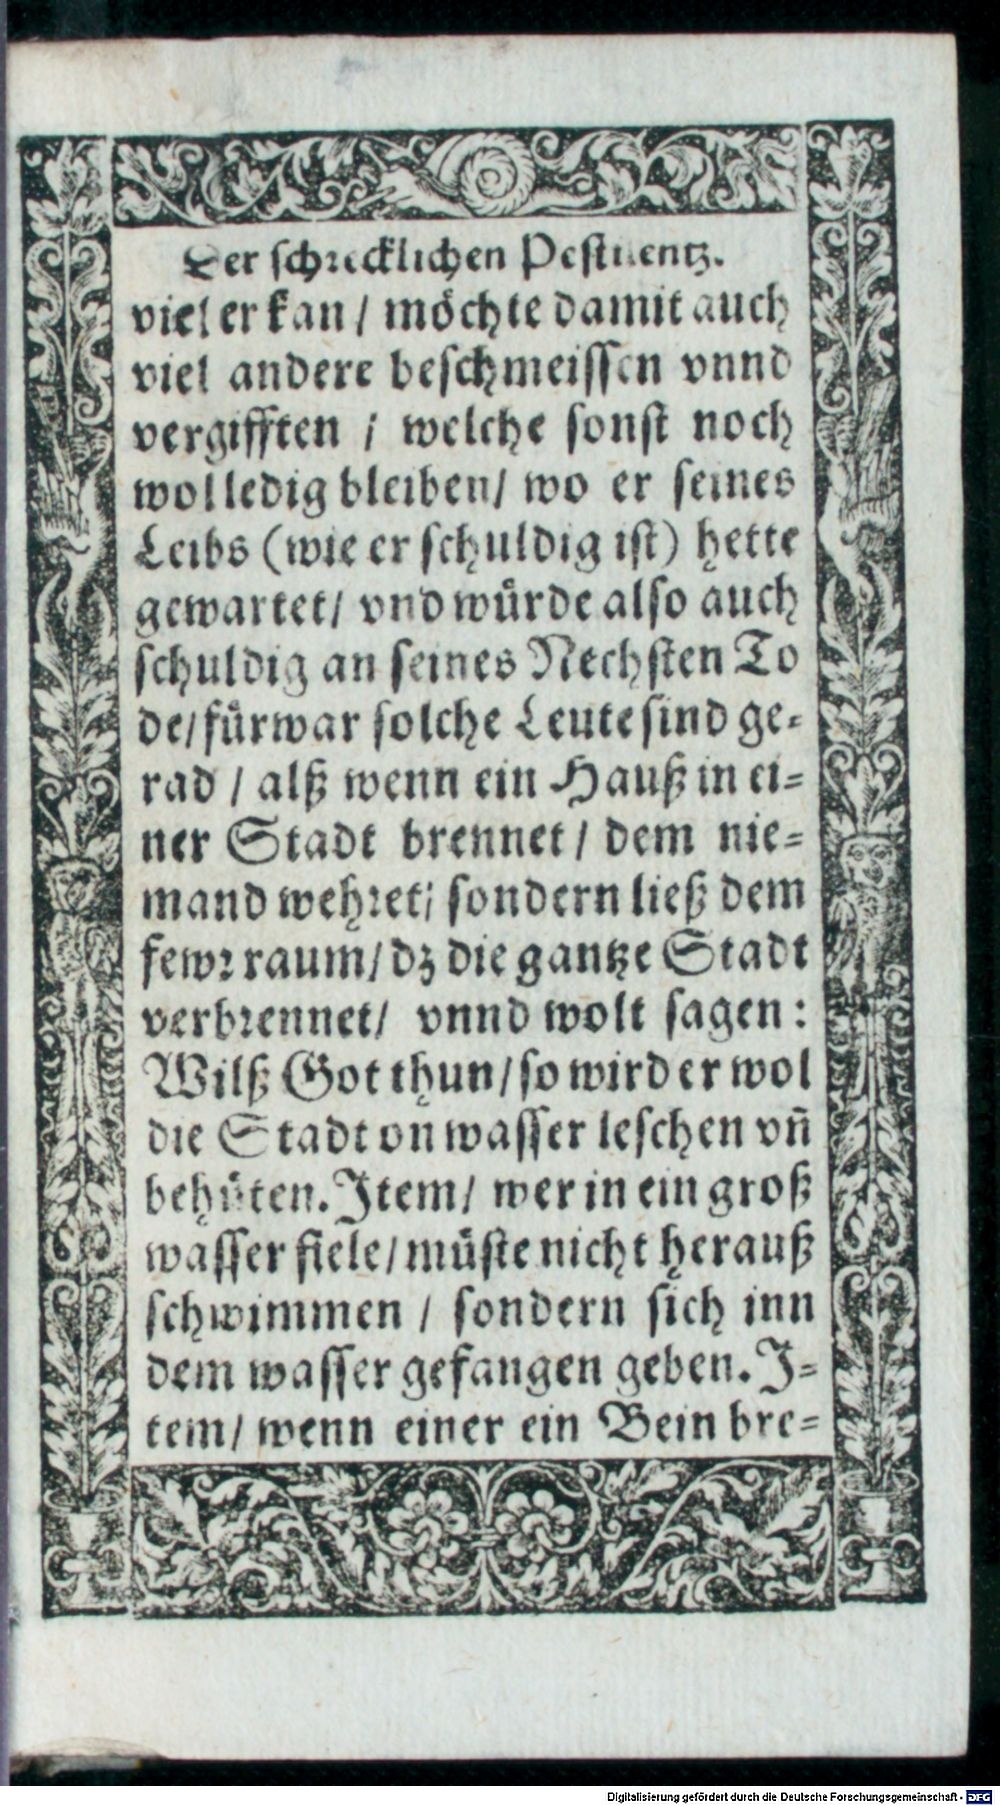 Der schrecklichen Pestilentz.
viel er kan / möchte damit auch
viel andere beschmeissen vnnd
vergifften / welche sonst noch
wol ledig bleiben / wo er seines
Leibs (wie er schuldig ist) hette
gewartet / vnd würde also auch
schuldig an seines Nechsten To
de / fürwar solche Leute sind ge-
rad / alß wenn ein Hauß in ei-
ner Stadt brennet / dem nie-
mand wehret / sondern ließ dem
fewr raum / dz die gantze Stadt
verbrennet / vnnd wolt sagen:
Wilß Got thun / so wird er wol
die Stadt on wasser leschen vñ
behüten. Item / wer in ein groß
wasser fiele / müste nicht herauß
schwimmen / sondern sich inn
dem wasser gefangen geben. I-
tem / wenn einer ein Bein bre-
Digitalisierung gefördert durch die Deutsche Forschungsgemeinschaft - DFG